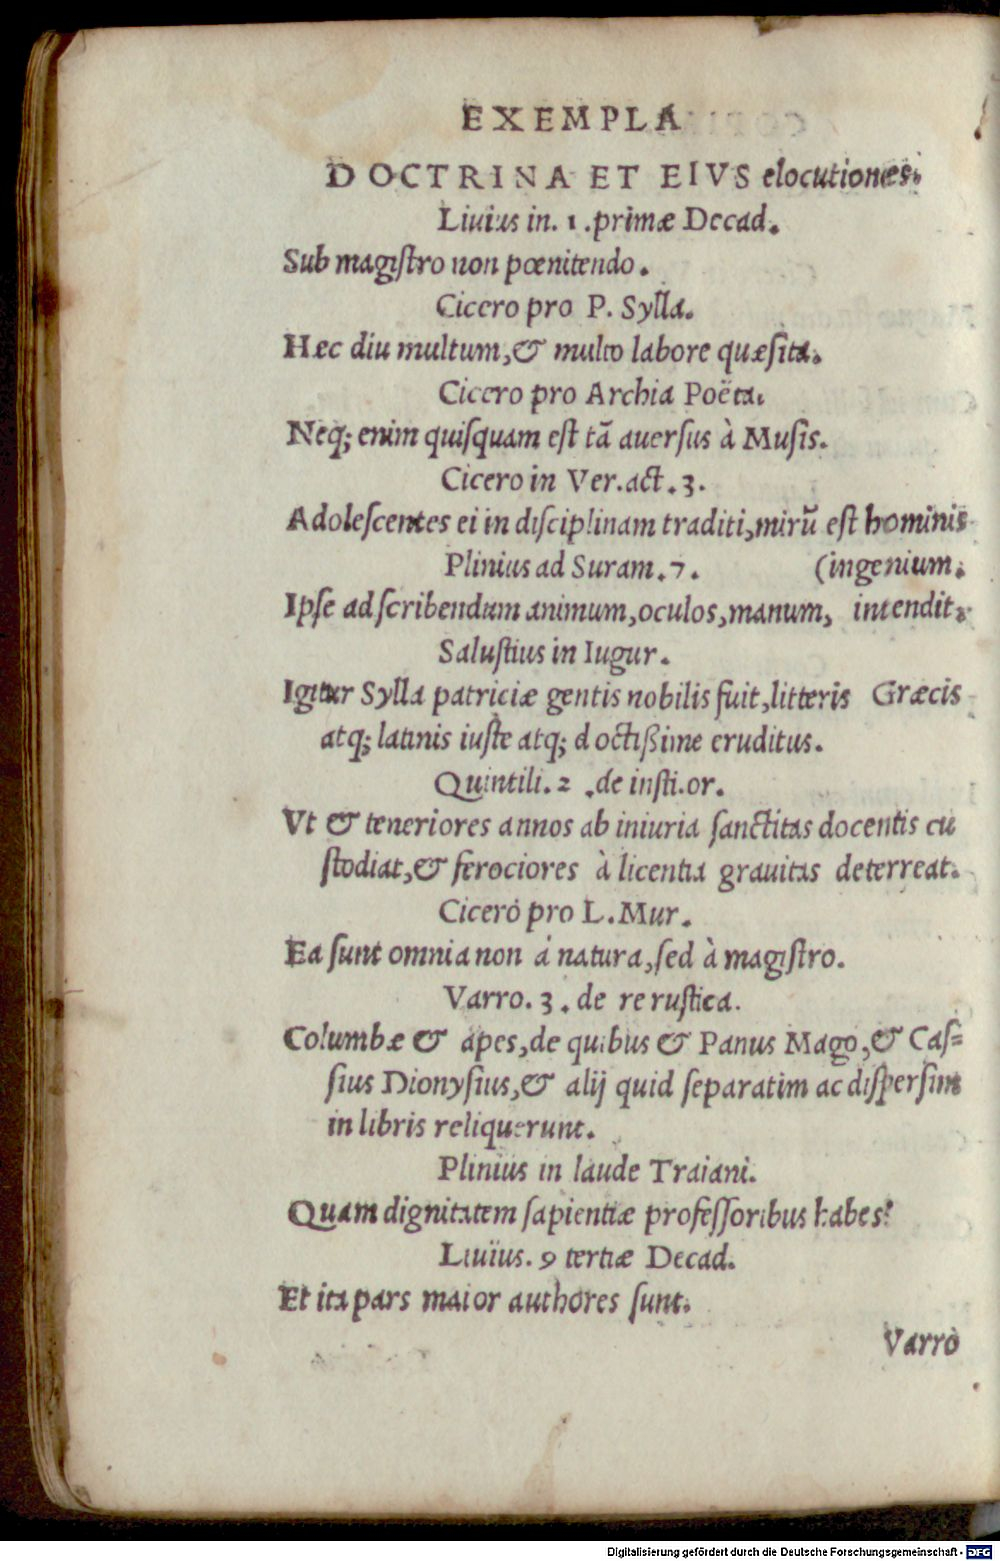 EXEMPLA
DOCTRINA ET EIVS elocutiones.
Liuius in. 1. primæ Decad.
Sub magiſtro non pœnitendo.
Cicero pro P. Sylla.
Hæc diu multum, & multo labore quæſita.
Cicero pro Archia Poëta.
Neq; enim quiſquam eſt tã auerſus à Muſis.
Cicero in Ver. act. 3.
Adoleſcentes ei in diſciplinam traditi, mirũ eſt hominis
Plinius ad Suram. 7. (ingenium.
Ipſe ad ſcribendum animum, oculos, manum, intendit.
Saluſtius in Iugur.
Igitur Sylla patriciæ gentis nobilis fuit, litteris Græcis
atq; latinis iuſte atq; doctißime eruditus.
Quintili. 2. de inſti. or.
Vt & teneriores annos ab iniuria ſanctitas docentis cu
ſtodiat, & ferociores à licentia grauitas deterreat.
Cicero pro L. Mur.
Ea ſunt omnia non á natura, ſed à magiſtro.
Varro. 3. de re ruſtica.
Columbæ & apes, de quibus & Panus Mago, & Caſ=
ſius Dionyſius, & alij quid ſeparatim ac diſperſim
in libris reliquerunt.
Plinius in laude Traiani.
Quam dignitatem ſapientiæ profeſſoribus habes?
Liuius. 9 tertiæ Decad.
Et ita pars maior authores ſunt.
Varro
Digitalisierung gefördert durch die Deutsche Forschungsgemeinschaft - DFG